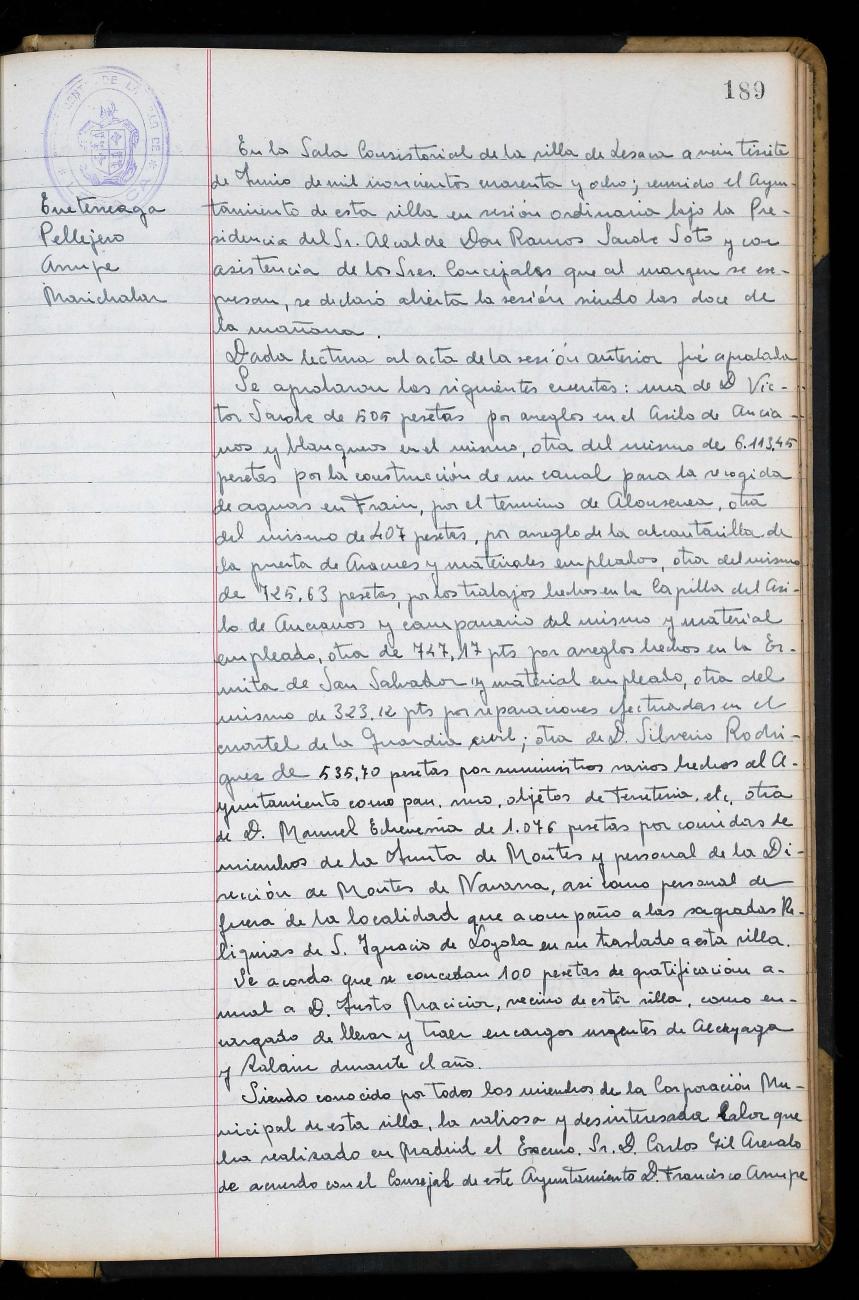 189
En la Sala Consistorial de la villa de Lesaca a veintisiete
de Junio de mil novecientos cuarenta y ocho; reunido el Ayun-
tamiento de esta villa en sesión ordinaria bajo la Pre-
sidencia del Sr. Alcalde Don Ramos Sarobe Soto y con
asistencia de los Sres. Concejales que al margen se ex-
presan, se declaró abierta la sesión siendo las doce de
la mañana.
Pellejero
Arrupe
Marichalar
Dada lectura al acta de la sesión anterior fué aprobada
Se aprobaron las siguientes cuentas: una de D Vic-
tor Sarobe de 505 pesetas por arreglos en el Asilo de Ancia-
nos y blanqueos en el mismo, otra del mismo de 6.113,45
pesetas por la construcción de un canal para la recogida
de aguas en Frain, por el término de, otra
del mismo de 407 pesetas, por arreglo de la alcantarilla de
la puerta de y materiales empleados, otra del mismo
de 725,63 pesetas, por los trabajos hechos en la Capilla del Asi-
lo de Ancianos y campanario del mismo y material
empleado, otra de 747,17 pts por arreglos hechos en la Er-
mita de San Salvador y material empleado, otra del
mismo de 323,12 pts por reparaciones efectuadas en el
cuartel de la Guardia civil; otra de D. Silverio Rodri-
guez de 535,70 pesetas por suministros varios hechos al A-
yuntamiento como pan, vino, objetos de ferreteria, etc, otra
de D. Manuel Echeverria de 1.076 pesetas por comidas de
miembros de la Junta de Montes y personal de la Di-
rección de Montes de Navarra, asi como personal de
fuera de la localidad que acompaño a las sagradas Re-
liquias de S. Ignacio de Loyola en su traslado a esta villa.
Se acordo que se concedan 100 pesetas de gratificación a-
nual a D. Justo Macicior, vecino de esta villa, como en-
cargado de llevar y traer encargos urgentes de Alcayaga
y Zalain durante el año.
Siendo conocido por todos los miembros de la Corporación Mu-
nicipal de esta villa, la valiosa y desinteresada labor que
ha realizado en Madrid el Excmo. Sr. D. Carlos Gil Arevalo
de acuerdo con el Consejal de este Ayuntamiento D. Francisco Arrupe